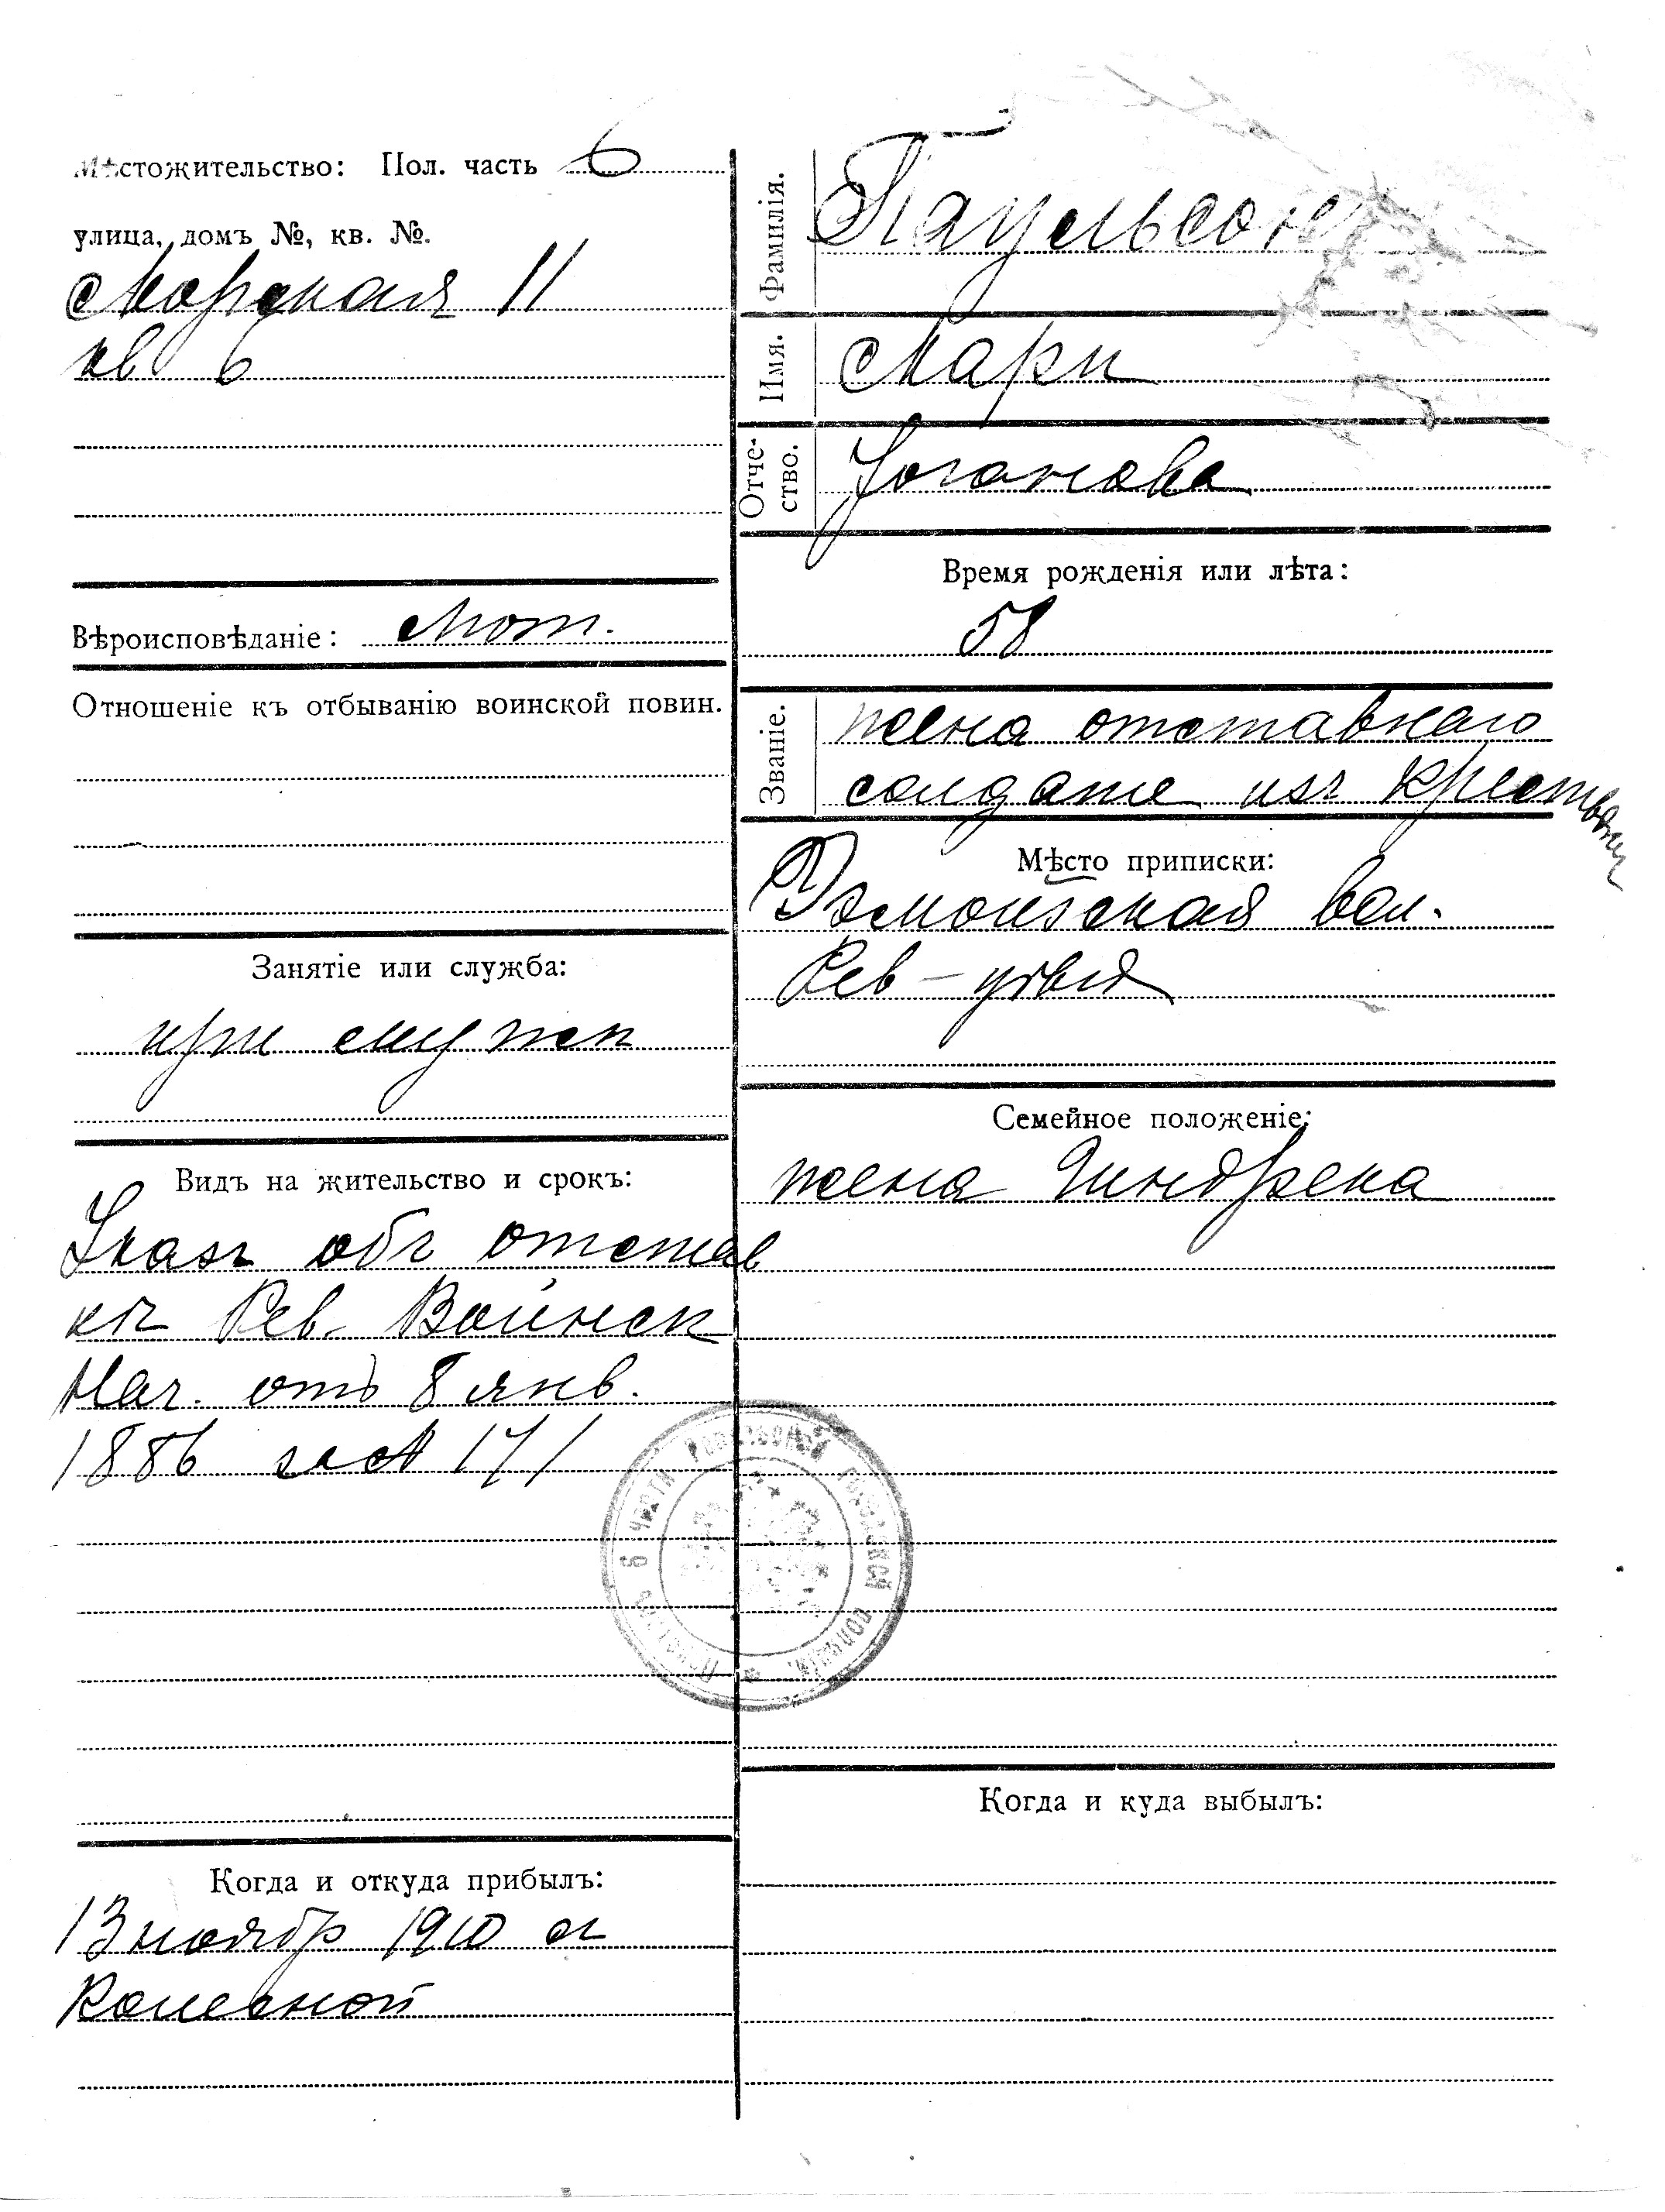 Мѣстожительство: Пол. часть 6
улица, домъ №, кв. №.
Морская 11
кв 6
Вѣроисповѣданіе: Лют.
Отношеніе къ отбыванію воинской повин.
Занятіе или служба:
при мужѣ
Видъ на жительство и срокъ:
Указъ объ отстав
кѣ Рев. Воинск
Нач. отъ 8 янв.
1886 за № 171
Когда и откуда прибылъ:
13 ноябр 1910 съ
Фамилія.
Паульсонъ
Имя.
Мари
Отче-
ство.
Іоганова
Время рожденія или лѣта:
58
Званіе.
жена отставнаго
солдата изъ крестьянъ
Мѣсто приписки:
вол.
Рев-уѣзд
Семейное положеніе:
жена Гиндрека
6 части Ревельской городской полиціи.
Когда и куда выбылъ: